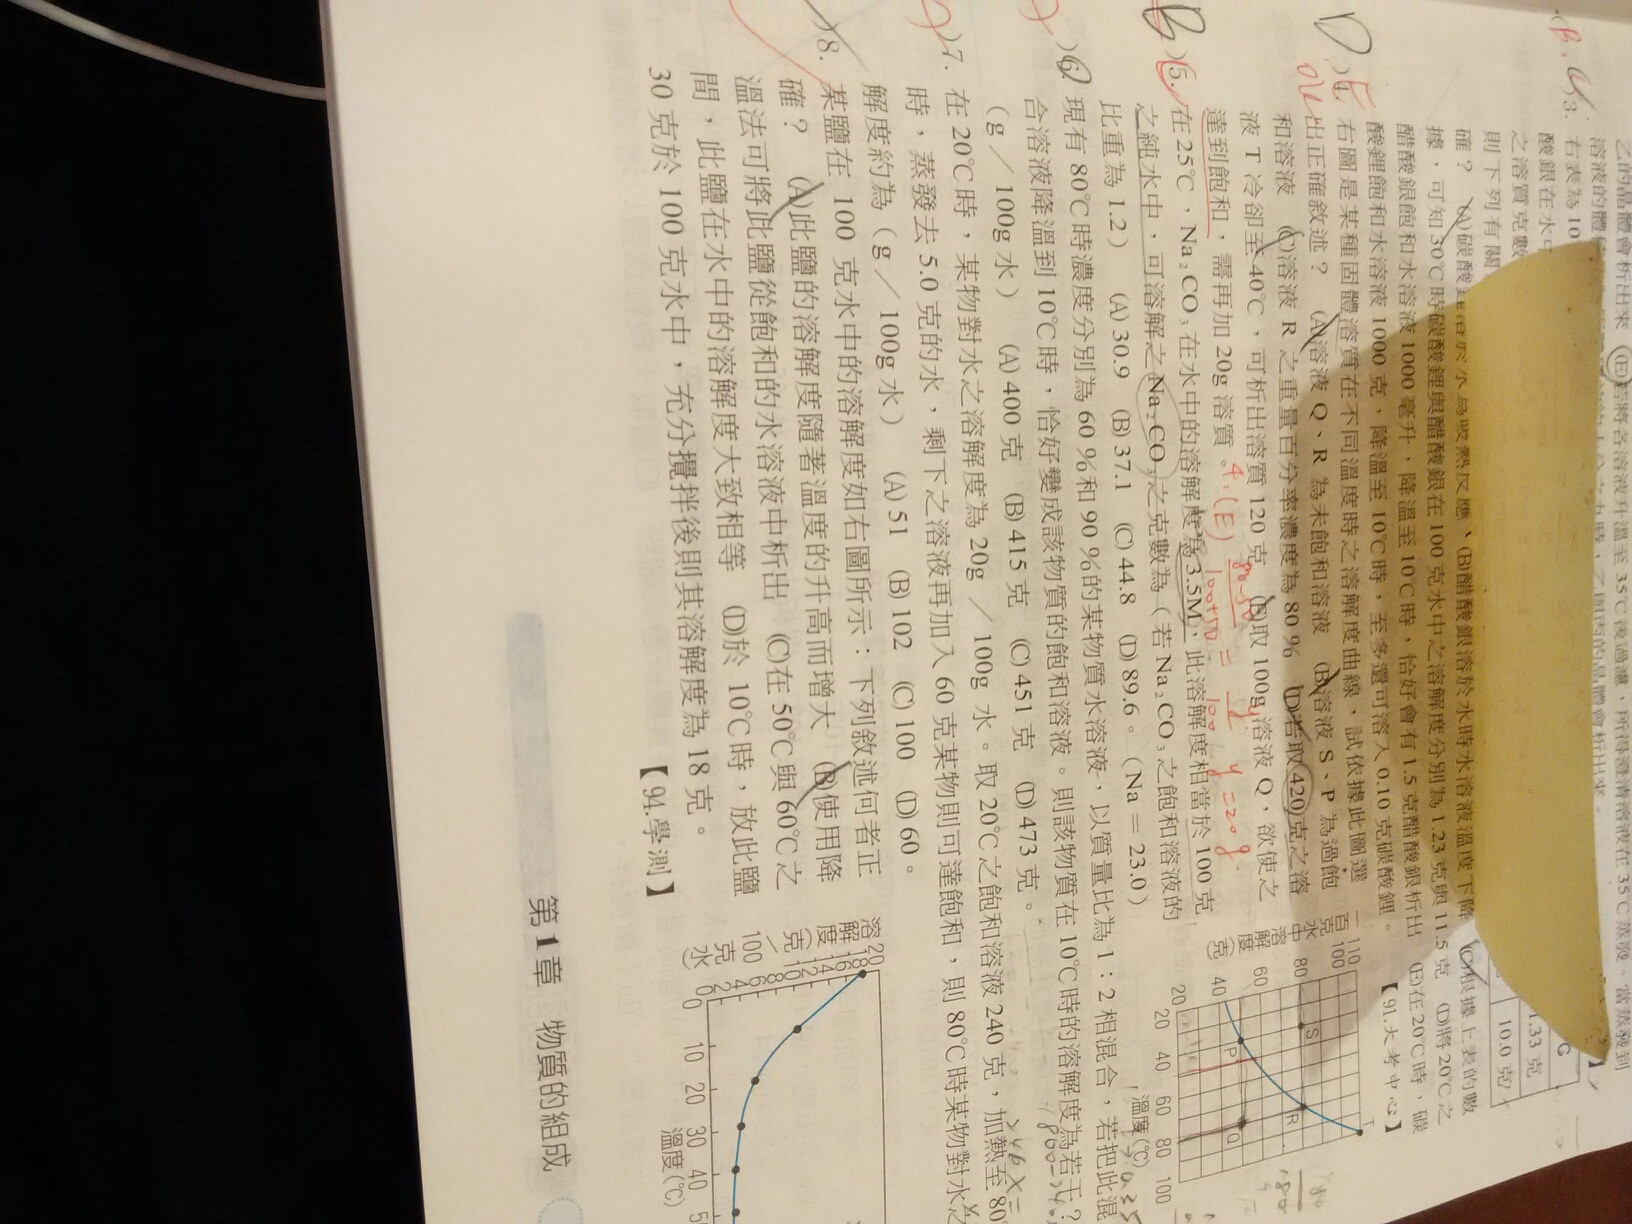 溶液的體
(E)若將各溶液升溫至 35℃後過濾，所得澄清溶液在 35℃蒸發。當蒸發到
3. 右表為 10
醋酸銀在水中
之溶質克數
則下列有關
1.33 克
10.0 克
確？ (A)碳酸鋰溶於水為吸熱反應、(B)醋酸銀溶於水時水溶液溫度下降 (C)根據上表的數
據，可知30℃時碳酸鋰與醋酸銀在 100 克水中之溶解度分別為 1.23 克與 11.5 克 (D)將 20℃之
醋酸銀飽和水溶液1000毫升，降溫至 10℃時，恰好會有 1.5 克醋酸銀析出 (E)在 20℃時，碳
酸鋰飽和水溶液 1000 克，降溫至 10℃時，至多還可溶入 0.10 克碳酸鋰。
【91.大考中心】
4. 右圖是某種固體溶質在不同溫度時之溶解度曲線，試依據此圖選
出正確敘述？ (A)溶液 Q、R 為未飽和溶液 (B)溶液 S、P 為過飽
和溶液 (C)溶液 R 之重量百分率濃度為 80 % (D)若取 420 克之溶
液 T 冷卻至 40℃，可析出溶質 120 克 (E)取 100g 溶液 Q，欲使之
達到飽和，需再加 20g 溶質。
4.(E)
y = 20g
一百克水中溶解度(克)
110
100
80
60
40
20
S
P
R
Q
T
20 40 60 80 100
溫度(℃)
5. 在 25℃，Na₂CO₃在水中的溶解度為 3.5M，此溶解度相當於 100 克
之純水中，可溶解之 Na₂CO₃之克數為（若 Na₂CO₃之飽和溶液的
比重為 1.2） (A) 30.9 (B) 37.1 (C) 44.8 (D) 89.6。（Na＝23.0）
6. 現有 80℃時濃度分別為 60 %和 90 %的某物質水溶液，以質量比為 1：2 相混合，若把此混
合溶液降溫到10℃時，恰好變成該物質的飽和溶液。則該物質在 10℃時的溶解度為若干？
(g ／ 100g 水) (A) 400 克 (B) 415 克 (C) 451 克 (D) 473 克。
7. 在 20℃時，某物對水之溶解度為 20g ／ 100g 水。取 20℃之飽和溶液 240 克，加熱至 80℃
時，蒸發去 5.0 克的水，剩下之溶液再加入 60 克某物則可達飽和，則 80℃時某物對水之
解度約為（g ／ 100g 水） (A) 51 (B) 102 (C) 100 (D) 60。
8. 某鹽在 100 克水中的溶解度如右圖所示：下列敘述何者正
確？ (A)此鹽的溶解度隨著溫度的升高而增大 (B)使用降
溫法可將此鹽從飽和的水溶液中析出 (C)在 50℃與 60℃之
間，此鹽在水中的溶解度大致相等 (D)於 10℃時，放此鹽
30 克於 100 克水中，充分攪拌後則其溶解度為 18 克。
【94.學測】
溶解度(克／100克水)
20
18
16
14
12
10
8
6
4
2
0
0 10 20 30 40
溫度(℃)
第 1 章 物質的組成